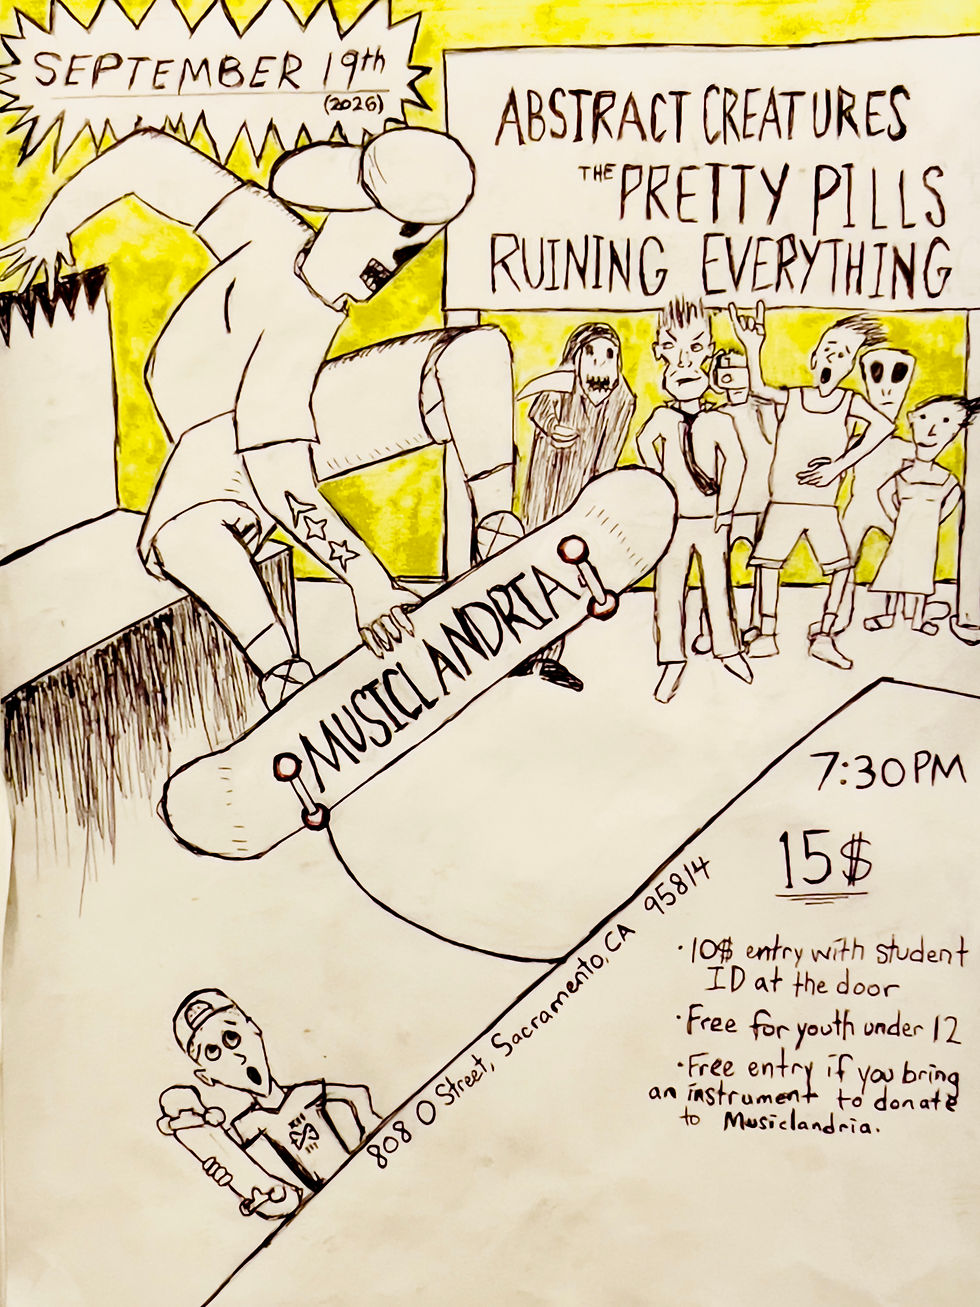 SEPTEMBER 19th
(2026)
ABSTRACT CREATURES
THE PRETTY PILLS
RUINING EVERYTHING
MUSICLANDRIA
7:30PM
15$
808 O Street, Sacramento, CA 95814
·10$ entry with student
ID at the door
·Free for youth under 12
·Free entry if you bring
an instrument to donate
to Musiclandria.